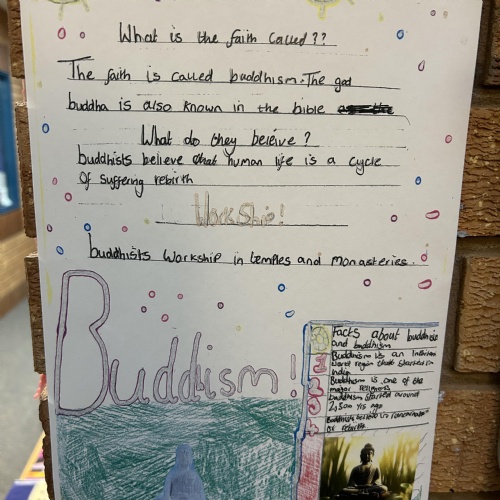 What is the faith Called??
The faith is called buddhism. The god
buddha is also known in the bible
What do they beleive?
buddhists believe that human life is a cycle
Of suffering rebirth
WorkShip!
buddhists Workship in temples and monasteries.
Buddism!
Facts about buddhists
and buddhism
Buddhism is an
started in
Buddhism is one of the
major religions
buddhism started around
2,500 yrs ago
Buddhists believe in
or rebirth